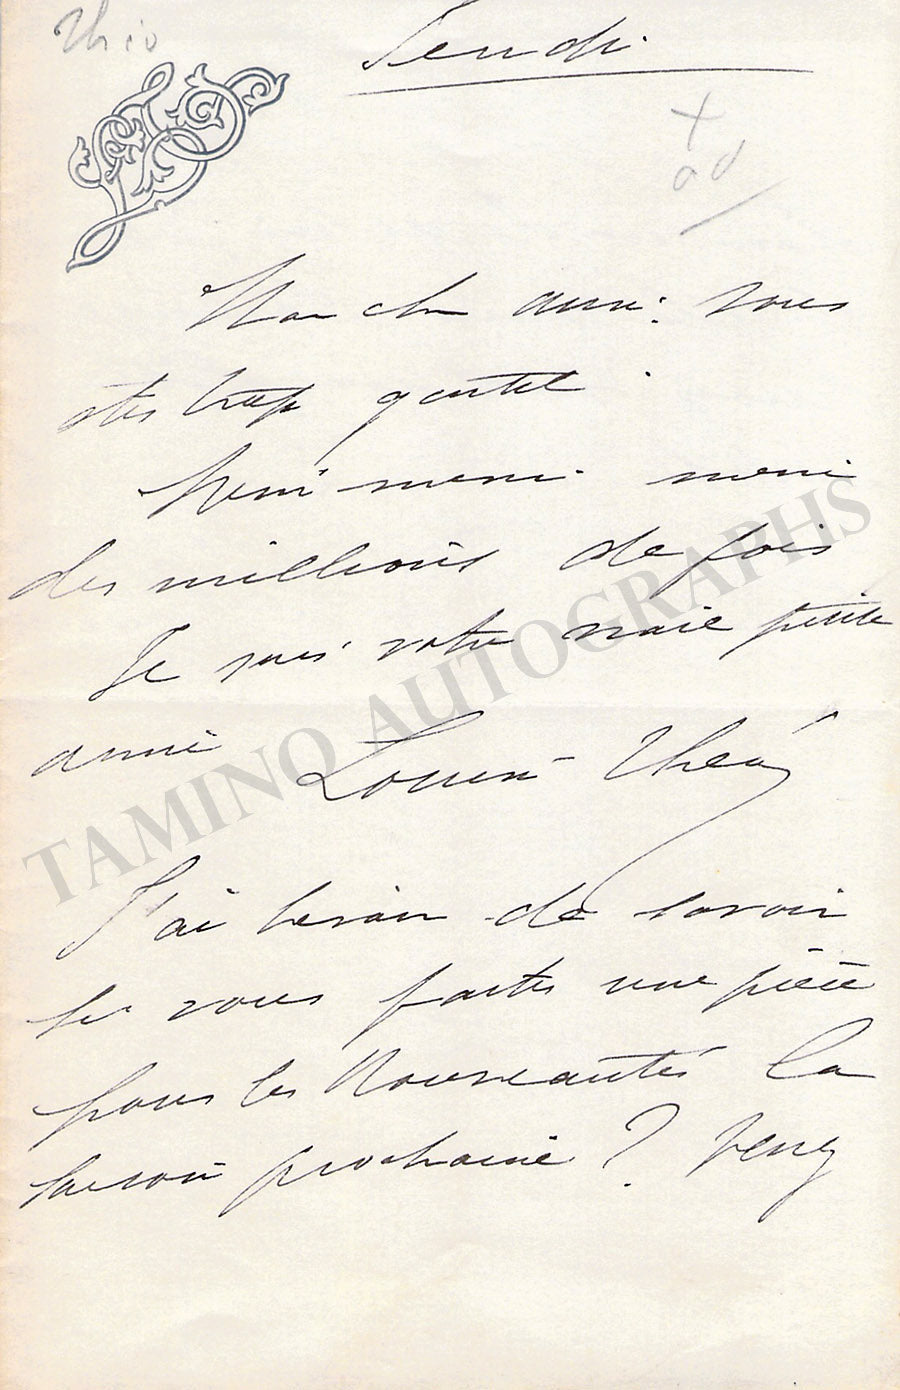 Théo
Jeudi
Mon cher ami vous
êtes trop gentil.
Merci merci merci
des millions de fois
Je suis votre vraie petite
amie Louise Théo
J'ai besoin de savoir
si vous faites une pièce
pour les Nouveautés la
saison prochaine ? Venez
TAMINO AUTOGRAPHS